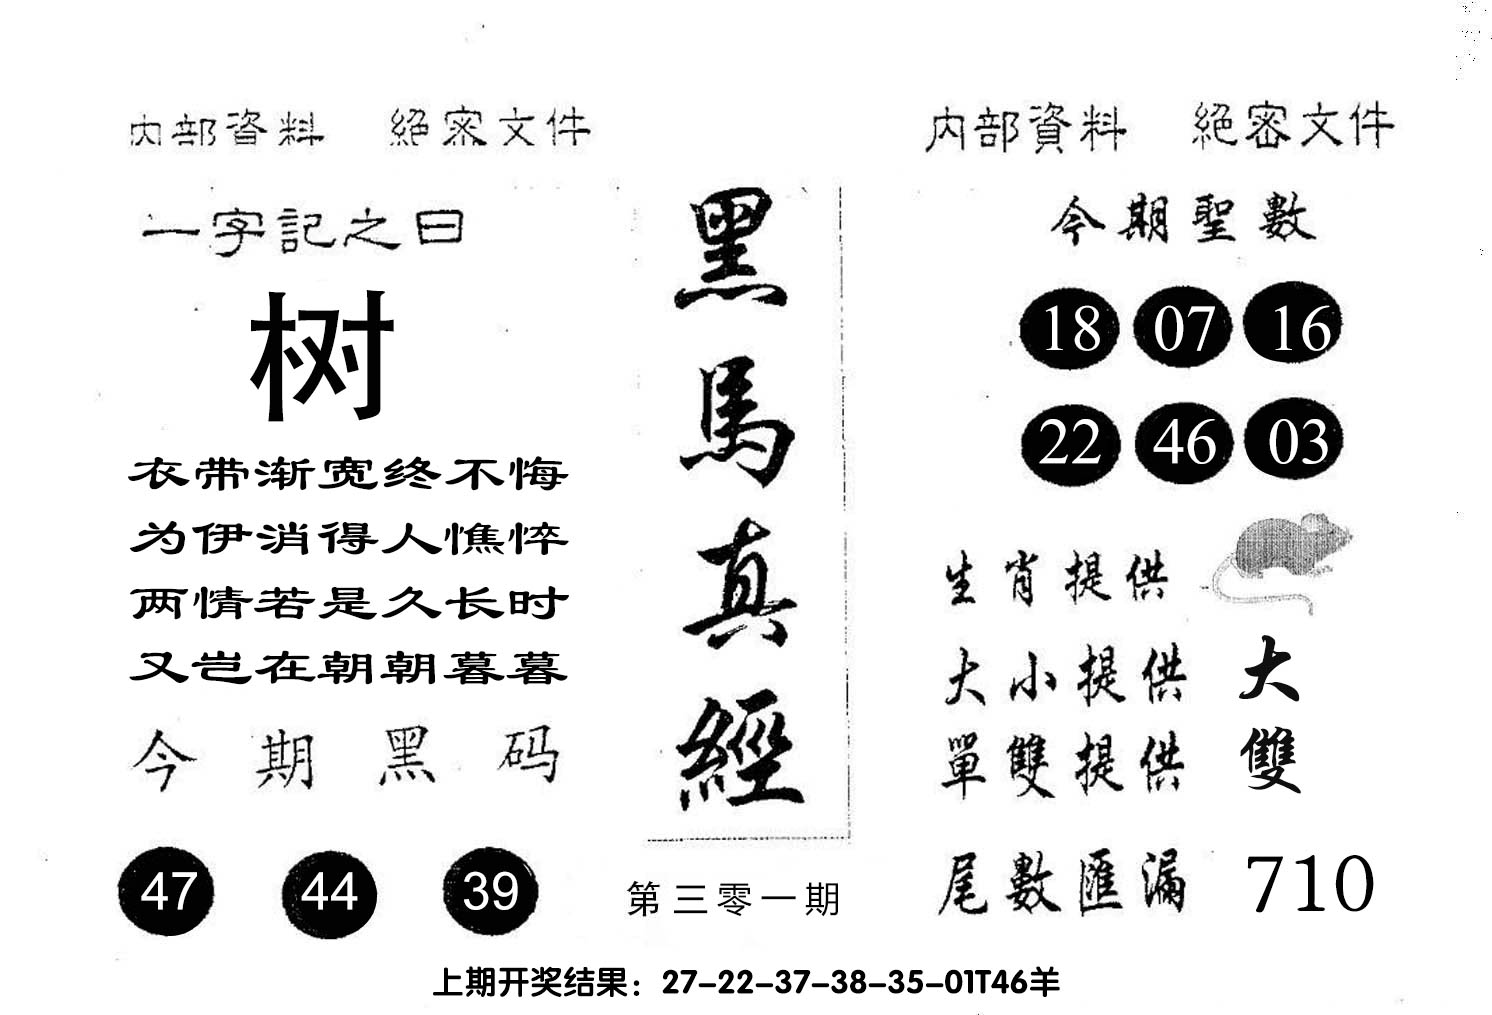 内部資料 絕密文件
一字記之曰
树
衣带渐宽终不悔
为伊消得人憔悴
两情若是久长时
又岂在朝朝暮暮
今期黑码
47 44 39
黑馬真經
第三零一期
内部資料 絕密文件
今期聖數
18 07 16
22 46 03
生肖提供
大小提供 大
單雙提供 雙
尾數匯漏 710
上期开奖结果：27-22-37-38-35-01T46羊